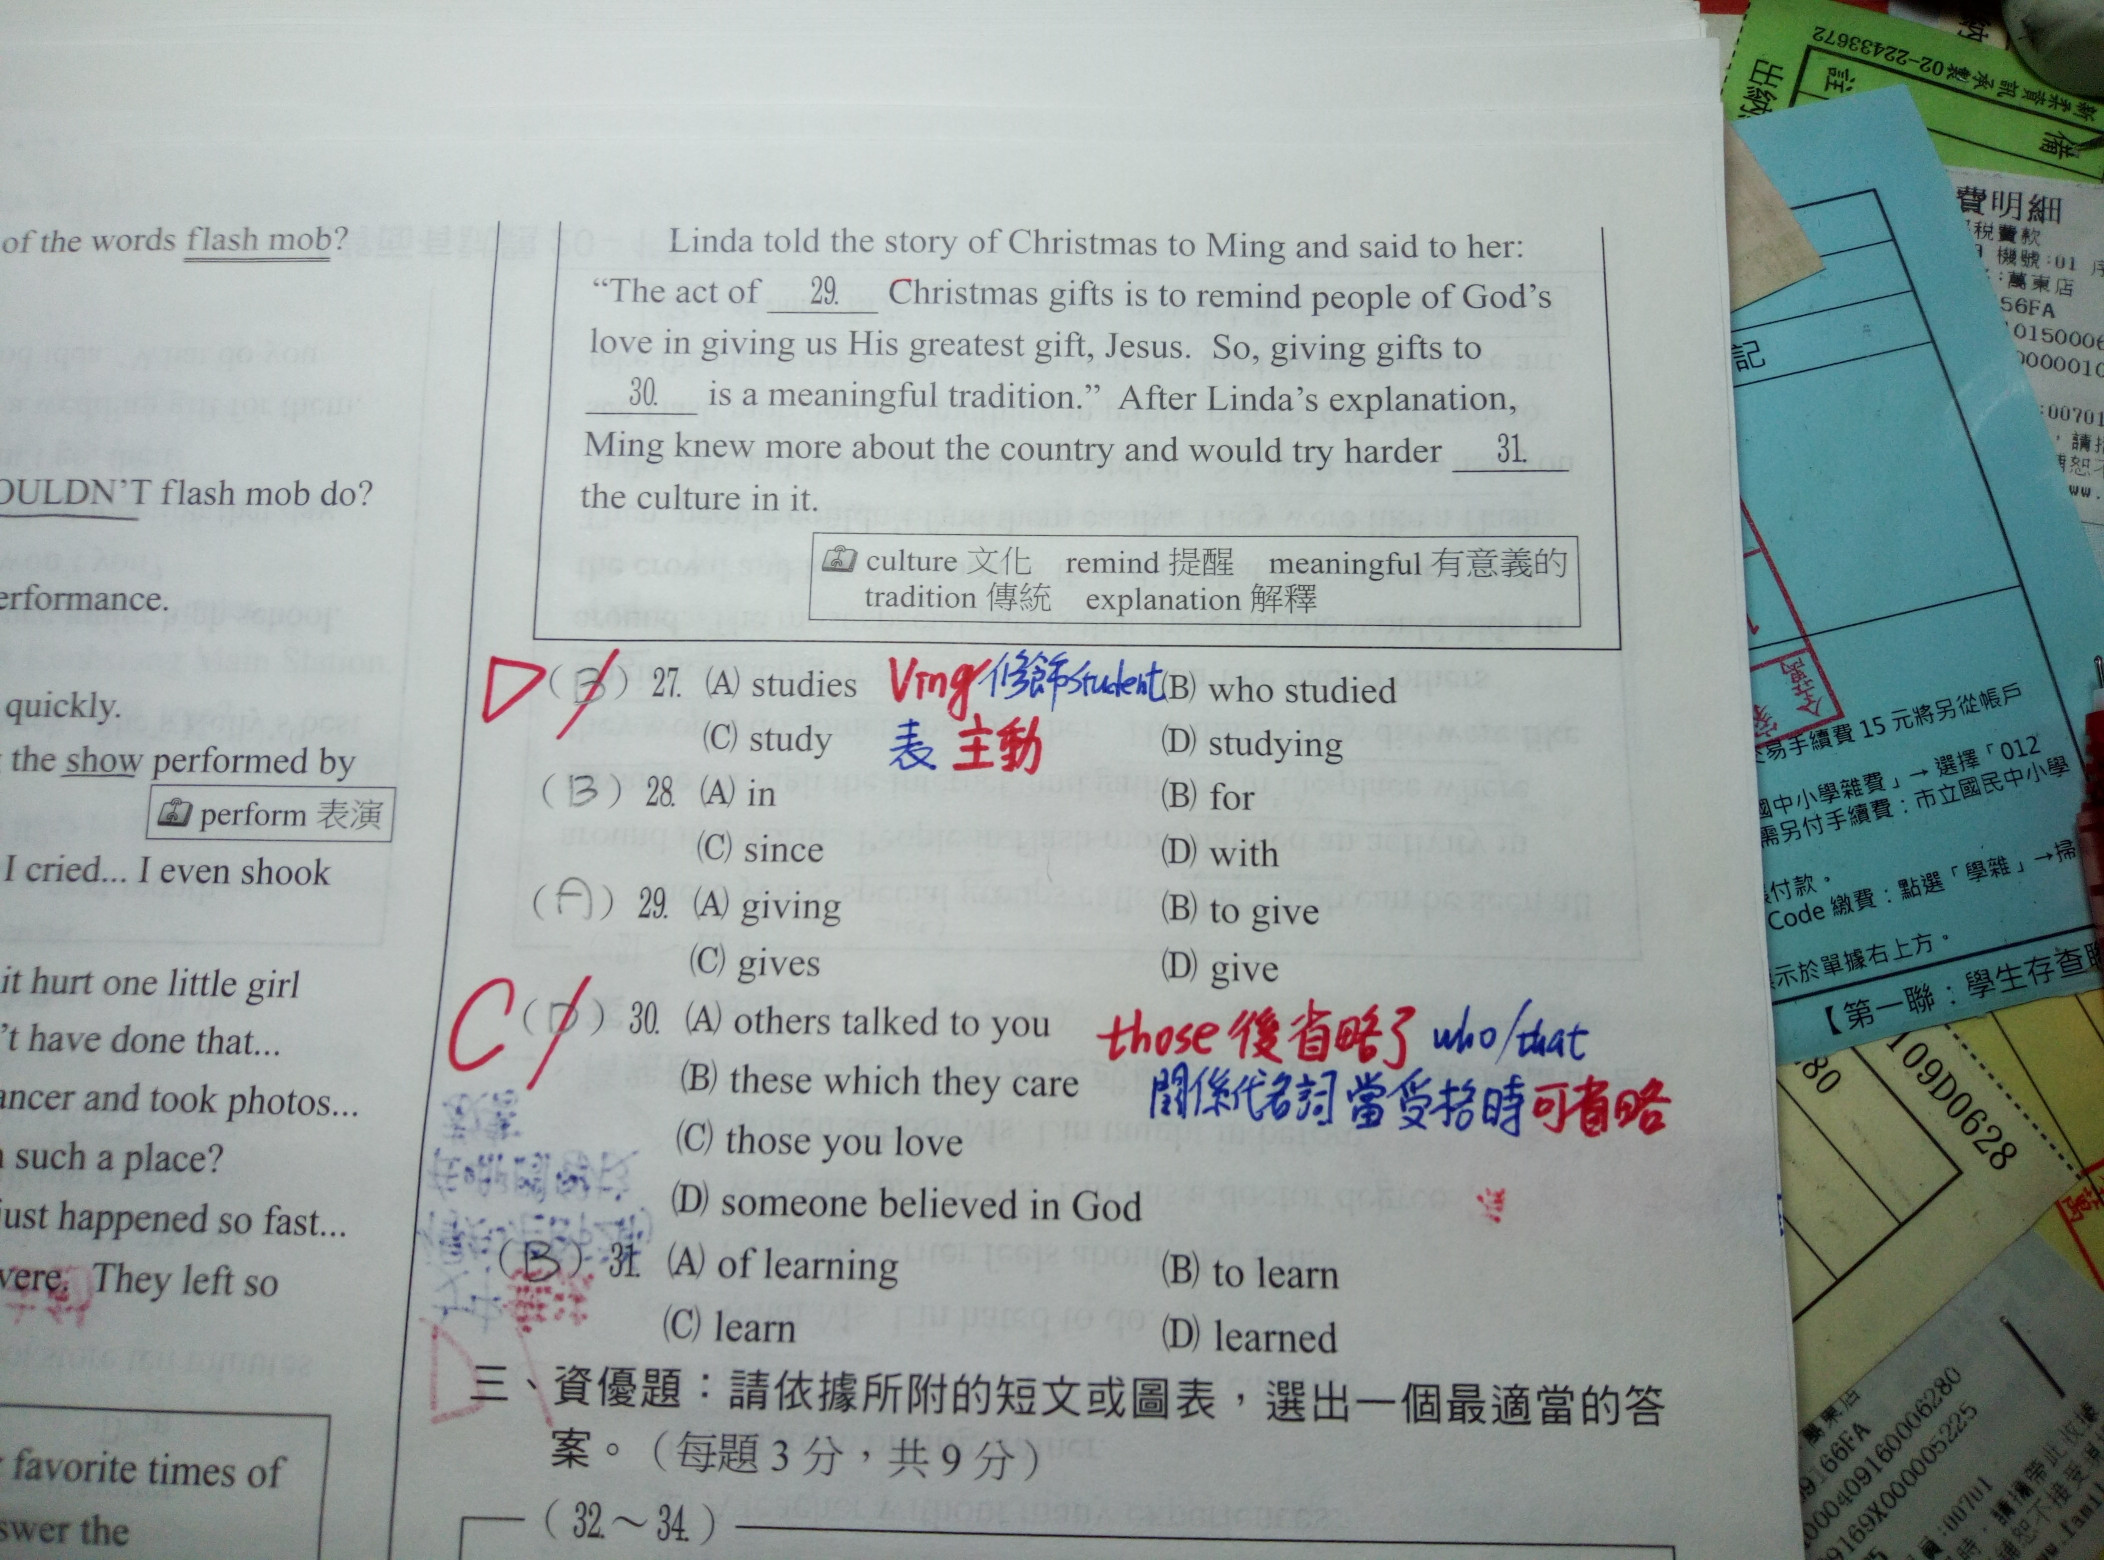 of the words flash mob?
OULDN'T flash mob do?
erformance.
quickly.
the show performed by
perform 表演
I cried... I even shook
it hurt one little girl
't have done that...
ancer and took photos...
such a place?
just happened so fast...
They left so
favorite times of
swer the
Linda told the story of Christmas to Ming and said to her:
“The act of 29. Christmas gifts is to remind people of God's
love in giving us His greatest gift, Jesus. So, giving gifts to
30. is a meaningful tradition.” After Linda's explanation,
Ming knew more about the country and would try harder 31.
the culture in it.
culture 文化 remind 提醒 meaningful 有意義的
tradition 傳統 explanation 解釋
D (B) 27. (A) studies Ving 修飾student (B) who studied
(C) study 表 主動 (D) studying
(B) 28. (A) in (B) for
(C) since (D) with
(A) 29. (A) giving (B) to give
(C) gives (D) give
C (D) 30. (A) others talked to you those 後省略了 who/that
(B) these which they care 關係代名詞當受格時可省略
(C) those you love
(D) someone believed in God
(B) 31. (A) of learning (B) to learn
(C) learn (D) learned
三、資優題：請依據所附的短文或圖表，選出一個最適當的答
案。（每題 3 分，共 9 分）
(32.～34.)
02-22433672
出納
註
備
費明細
稅費款
機號:01 序
:萬東店
56FA
記
易手續費 15 元將另從帳戶
國中小學雜費」→ 選擇「012
需另付手續費：市立國民中小學
付款。
Code 繳費：點選「學雜」→掃
示於單據右上方。
【第一聯：學生存查聯
109D0628
80
萬東店
166FA
0000409160006280
9169X000005225
:00701